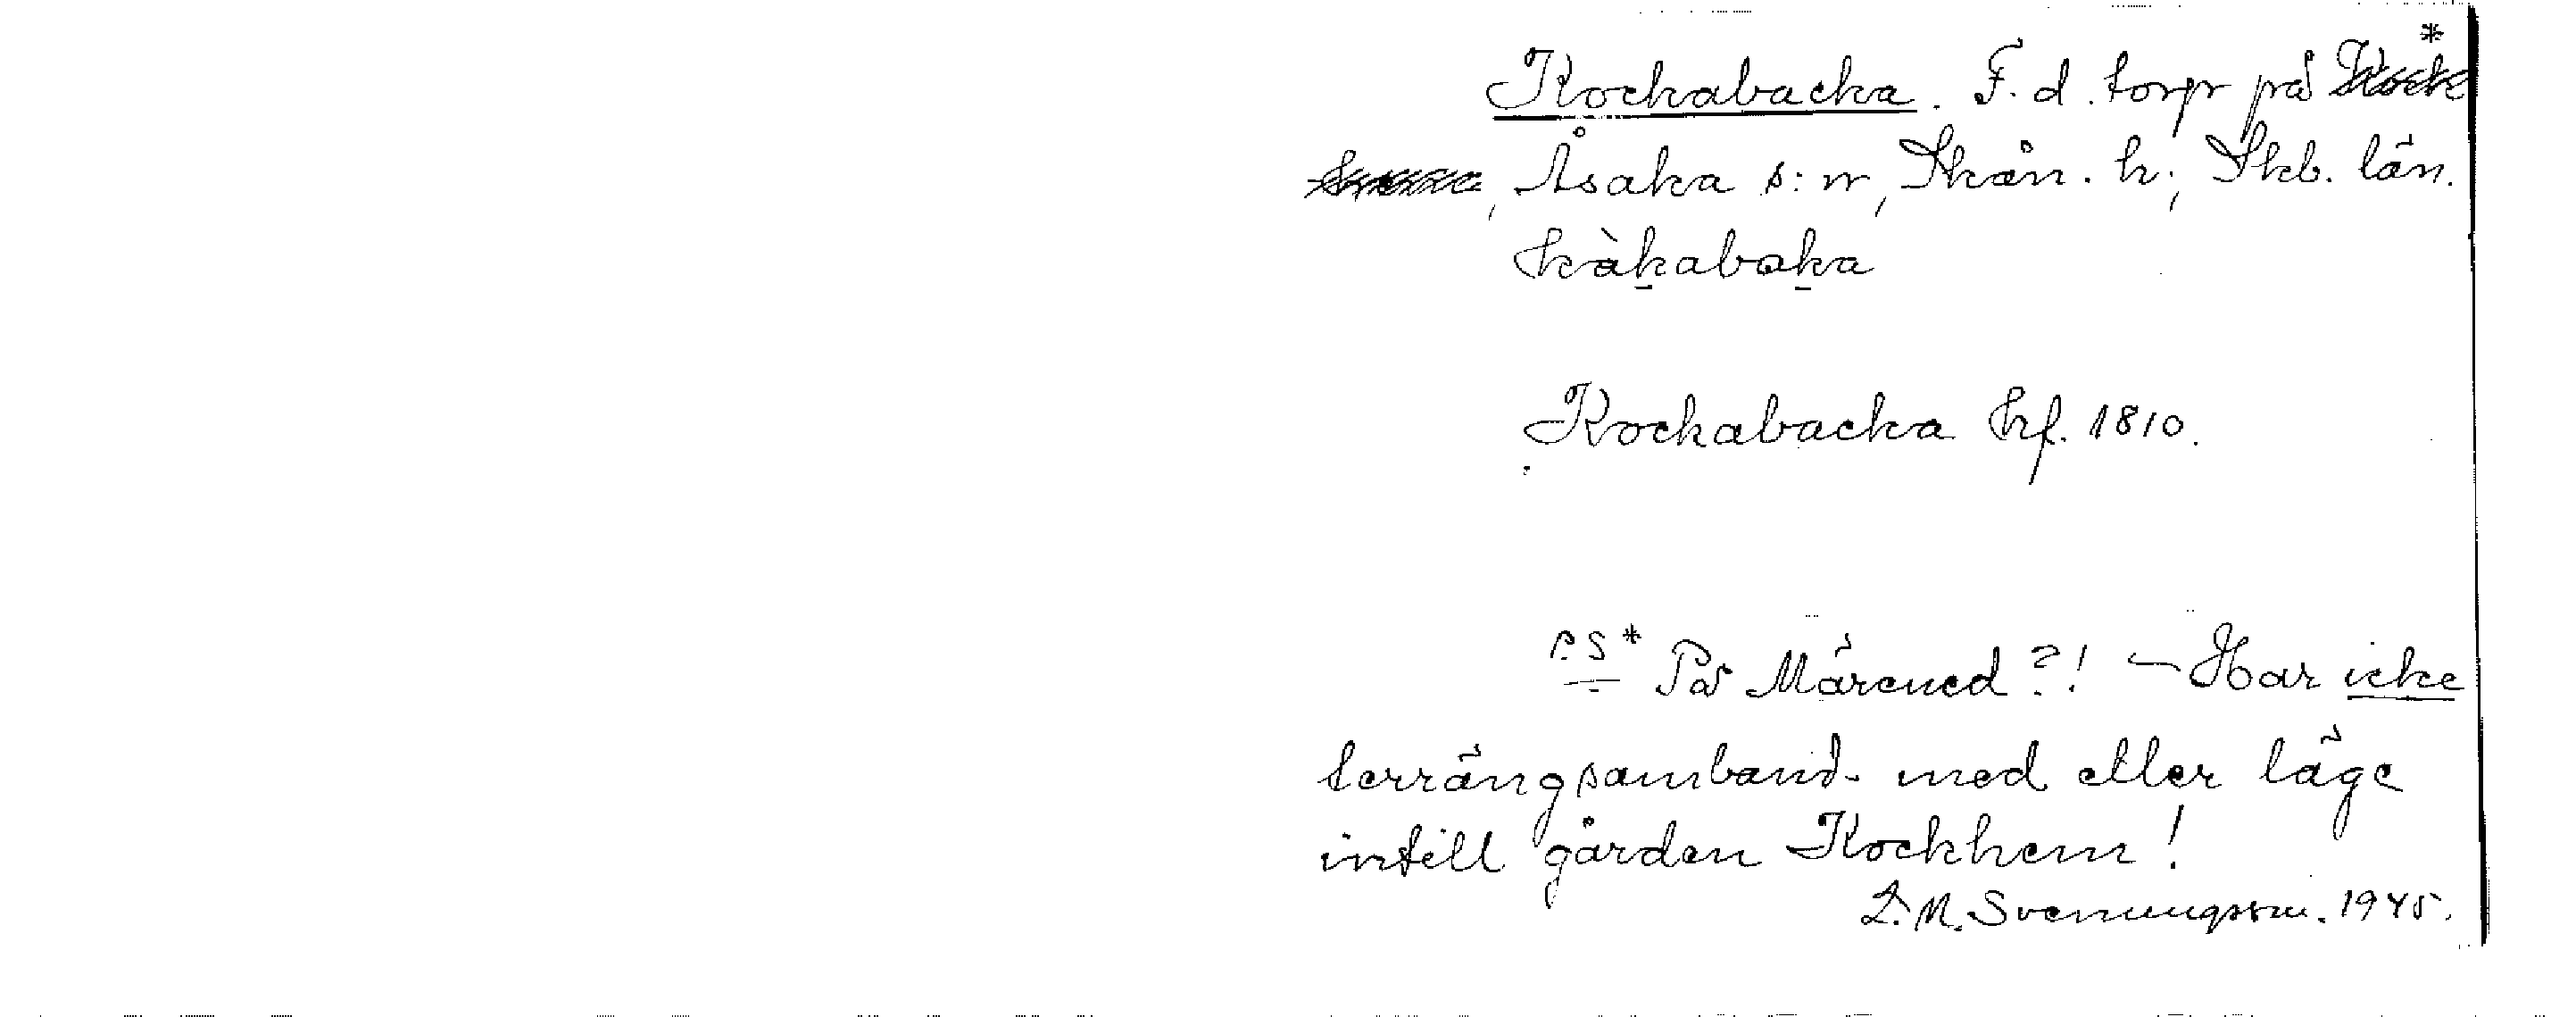 Kockabacka. F. d. torp på *
Åsaka s:n, Skån. h., Skb. län.
kàkabaka
Kockabacka hf. 1810.
P.S* På Märened?! – Har icke
terrängsamband med eller läge
intill gården Kockhem!
D. M. Svenungsson. 1945.